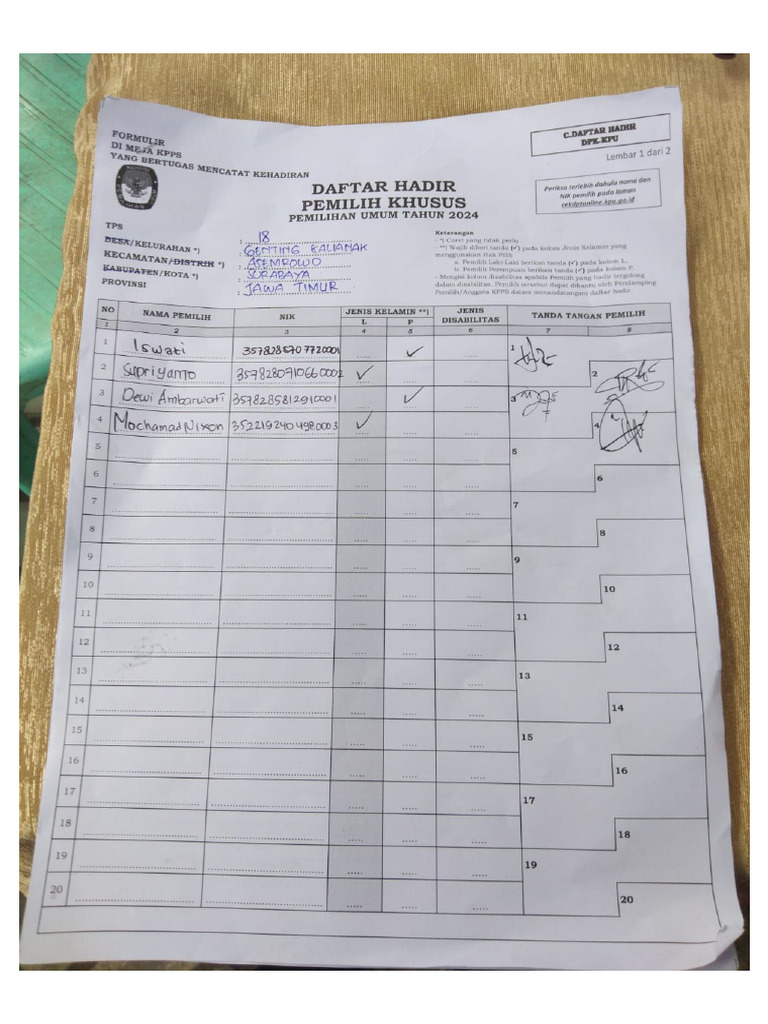 FORMULIR
DI MEJA KPPS
YANG BERTUGAS MENCATAT KEHADIRAN
C.DAFTAR HADIR
DPK-KPU
Lembar 1 dari 2
DAFTAR HADIR
PEMILIH KHUSUS
PEMILIHAN UMUM TAHUN 2024
Periksa terlebih dahulu nama dan
NIK pemilih pada laman
cekdptonline.kpu.go.id
TPS : 18
DESA/KELURAHAN *) : GENTING KALIANAK
KECAMATAN/DISTRIK *) : ASEMROWO
KABUPATEN/KOTA *) : SURABAYA
PROVINSI : JAWA TIMUR
Keterangan
- *) Coret yang tidak perlu
- **) Wajib diberi tanda (✓) pada kolom Jenis Kelamin yang
menggunakan Hak Pilih
a. Pemilih Laki-Laki berikan tanda (✓) pada kolom L.
b. Pemilih Perempuan berikan tanda (✓) pada kolom P.
- Mengisi kolom disabilitas apabila Pemilih yang hadir tergolong
dalam disabilitas. Pemilih tersebut dapat dibantu oleh Pendamping
Pemilih/Anggota KPPS dalam menandatangani daftar hadir.
NO NAMA PEMILIH NIK JENIS KELAMIN **) L P JENIS DISABILITAS TANDA TANGAN PEMILIH
1 2 3 4 5 6 7 8
1 Iswati 3578285707720001 ✓ 1
2 Supriyanto 3578280710660002 ✓ 2
3 Dewi Ambarwati 3578285812910001 ✓ 3
4 Mochamad Nixon 3522192404980003 ✓ 4
5 5
6 6
7 7
8 8
9 9
10 10
11 11
12 12
13 13
14 14
15 15
16 16
17 17
18 18
19 19
20 20